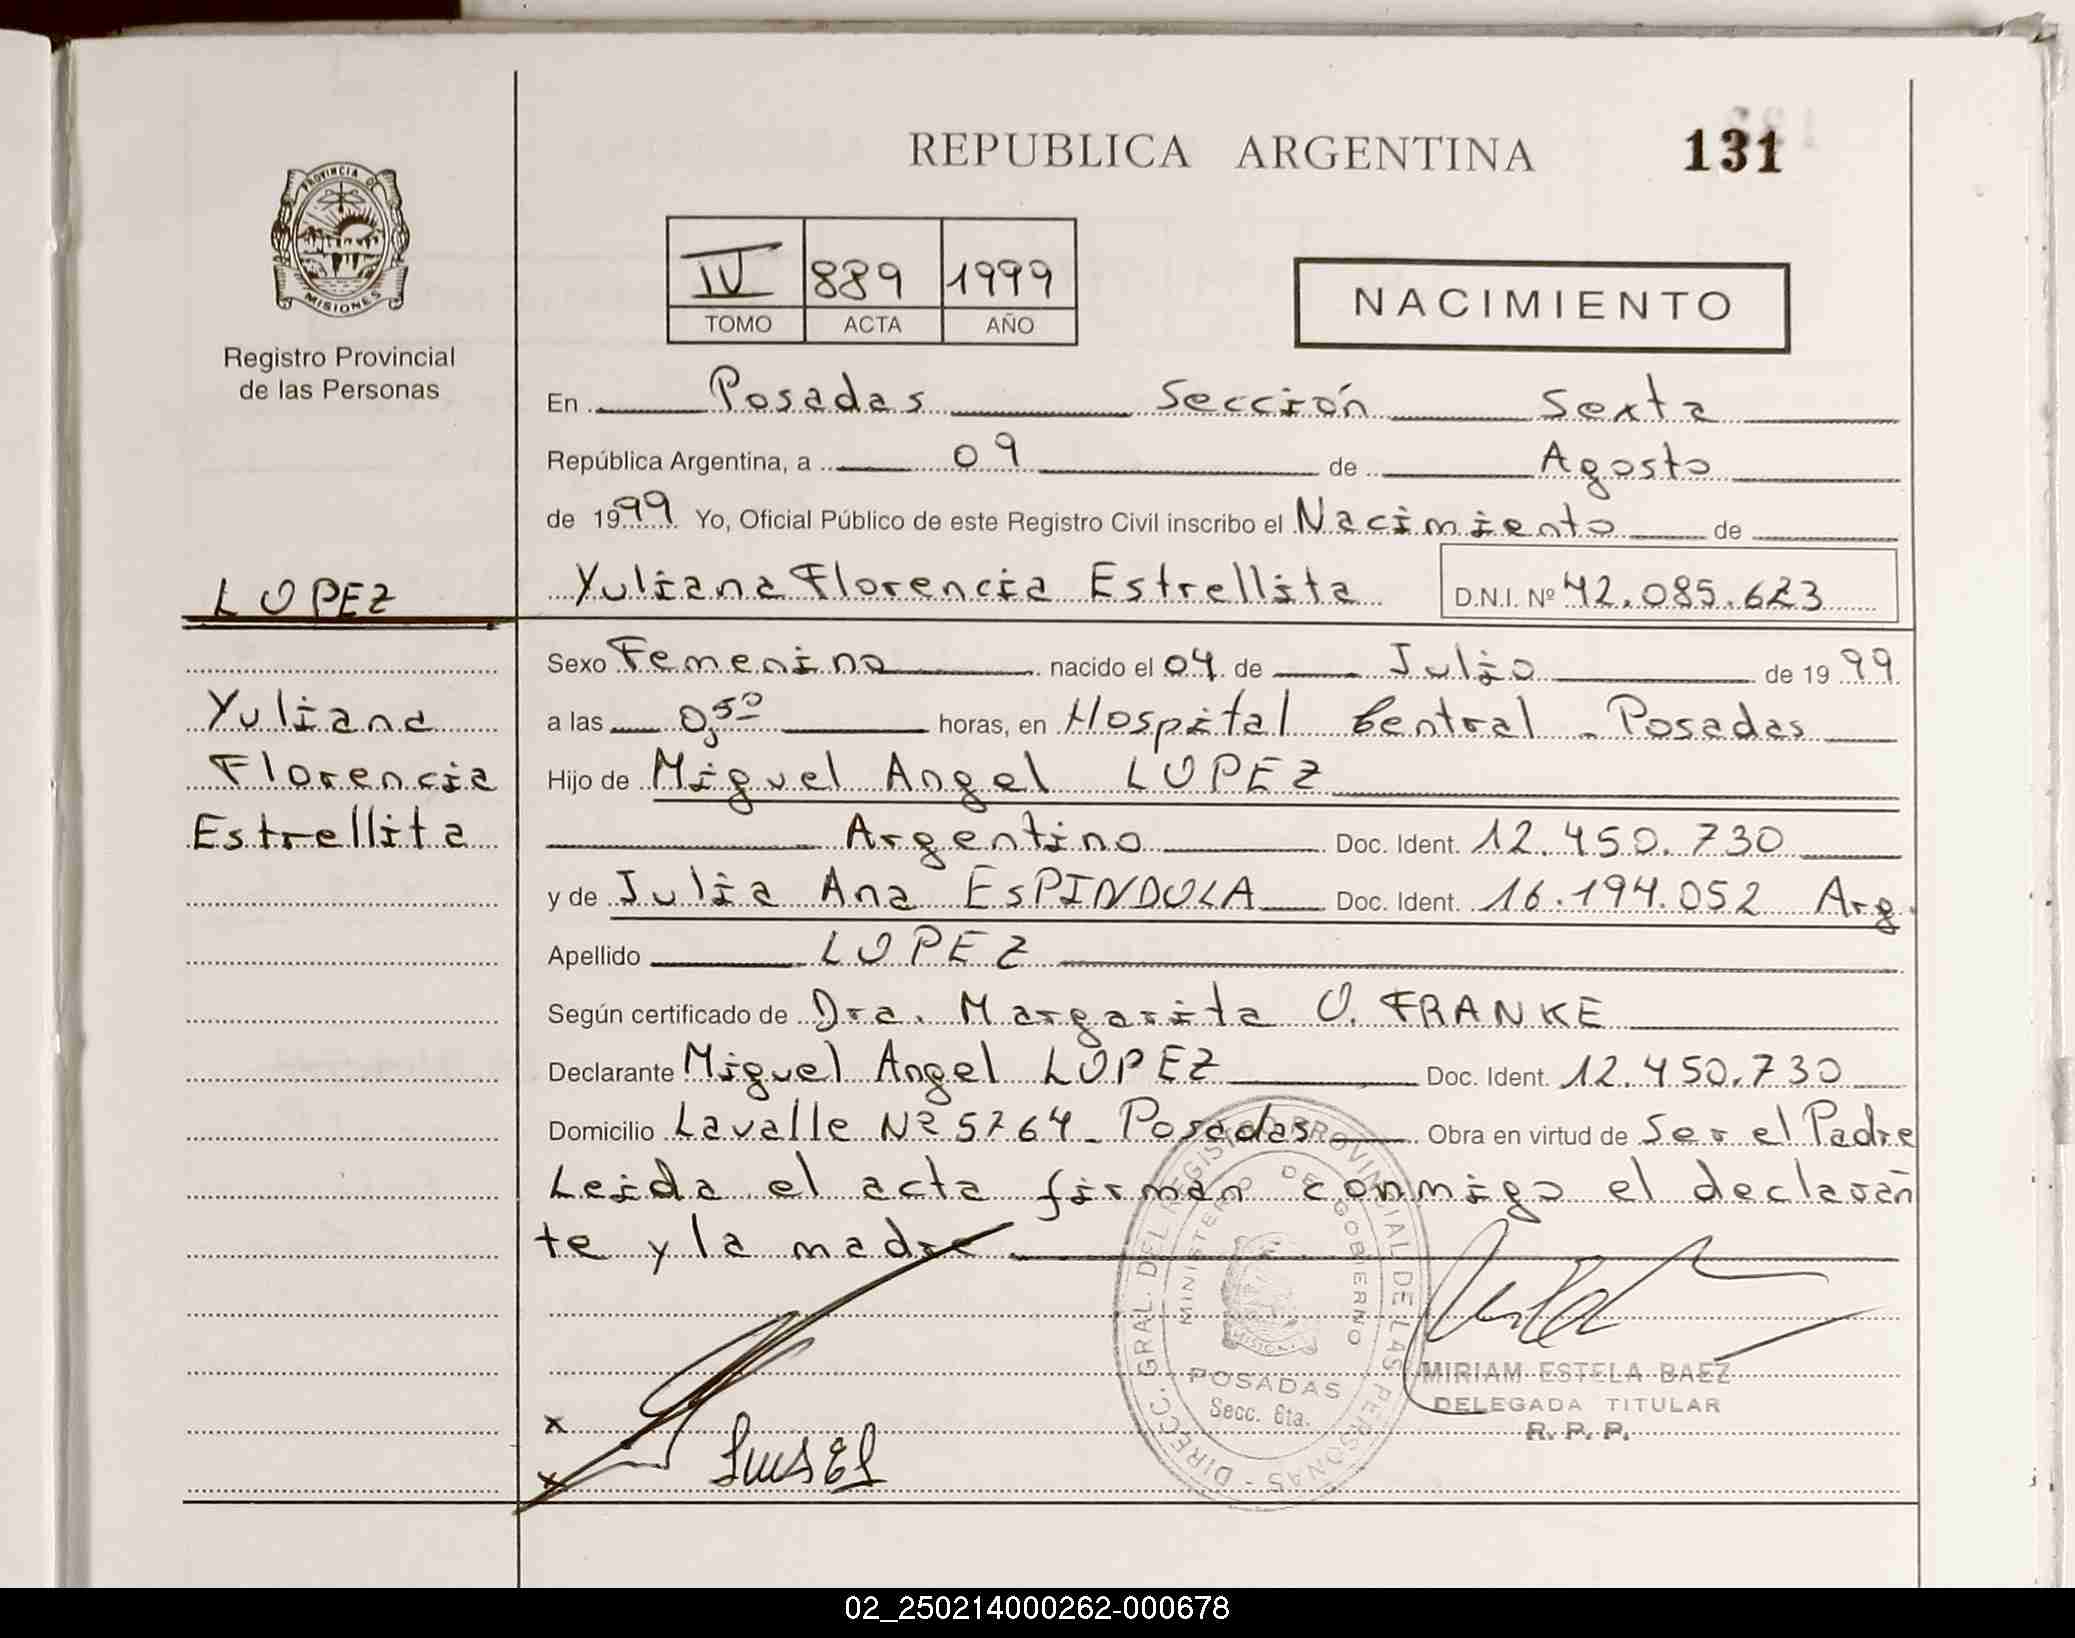 REPUBLICA ARGENTINA
131
PROVINCIA DE
MISIONES
Registro Provincial
de las Personas
IV 889 1999
TOMO ACTA AÑO
NACIMIENTO
En Posadas Sección Sexta
República Argentina, a 09 de Agosto
de 1999 Yo, Oficial Público de este Registro Civil inscribo el Nacimiento de
LOPEZ
Yuliana Florencia Estrellita D.N.I. Nº 42.085.623
Sexo Femenino nacido el 04 de Julio de 1999
Yuliana
Florencia
Estrellita
a las 0,50 horas, en Hospital Central - Posadas
Hijo de Miguel Angel LOPEZ
Argentino Doc. Ident. 12.450.730
y de Julia Ana ESPINDOLA Doc. Ident. 16.194.052 Arg.
Apellido LOPEZ
Según certificado de Dra. Margarita O. FRANKE
Declarante Miguel Angel LOPEZ Doc. Ident. 12.450.730
Domicilio Lavalle Nº 5764 - Posadas Obra en virtud de Ser el Padre
Leida el acta firman conmigo el declaran
te y la madre
DIRECC. GRAL. DEL REGISTRO PROVINCIAL DE LAS PERSONAS -
MINISTERIO DE GOBIERNO
POSADAS
Secc. 6ta.
MIRIAM ESTELA BAEZ
DELEGADA TITULAR
R. P. P.
x
x
02_250214000262-000678